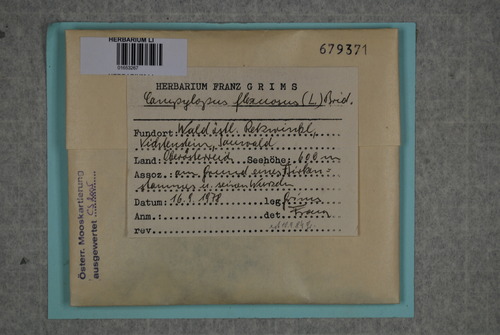 HERBARIUM LI
679371
HERBARIUM FRANZ GRIMS
Campylopus flexuosus (L.) Brid.
Fundort: Wald östl.
Vichtenstein, Sauwald
Land: Oberösterreich Seehöhe: 600 m
Assoz. am Grund eines Birken-
stammes u. seinen Wurzeln
Datum: 16.9.1978 leg. Grims
Anm.: det. Franz
rev.
Österr. Mooskartierung
ausgewertet